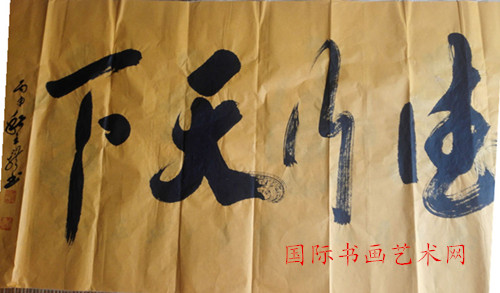 德行天下
丙申
书
国际书画艺术网